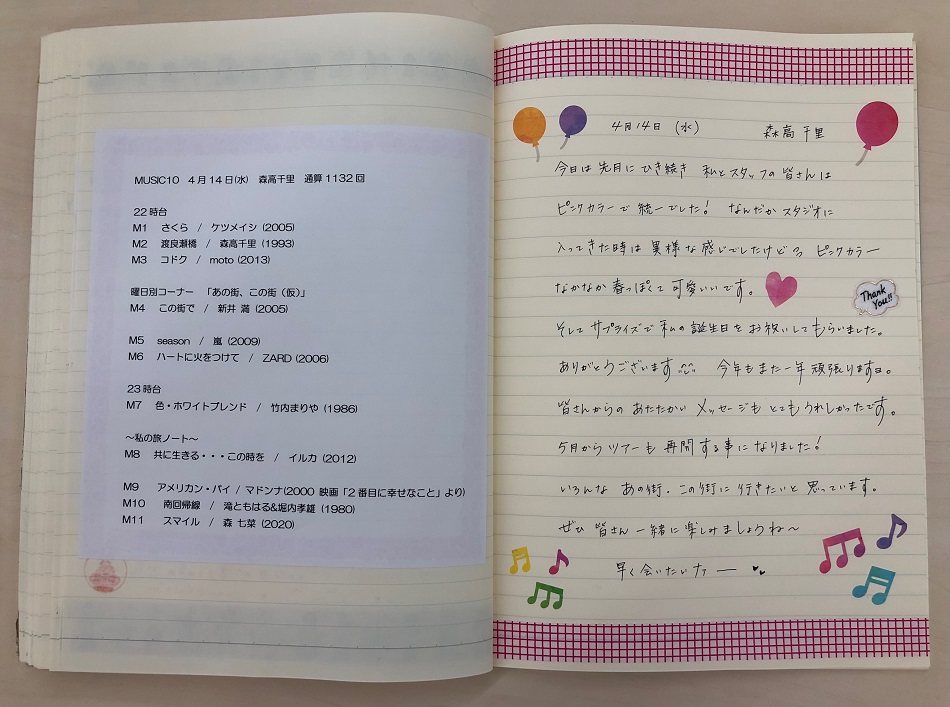 MUSIC10 4月14日(水) 森高千里 通算1132回
22時台
M1 さくら / ケツメイシ (2005)
M2 渡良瀬橋 / 森高千里 (1993)
M3 コドク / moto (2013)
曜日別コーナー 「あの街、この街(仮)」
M4 この街で / 新井 満 (2005)
M5 season / 嵐 (2009)
M6 ハートに火をつけて / ZARD (2006)
23時台
M7 色・ホワイトブレンド / 竹内まりや (1986)
～私の旅ノート～
M8 共に生きる・・・この時を / イルカ (2012)
M9 アメリカン・パイ / マドンナ(2000 映画「2番目に幸せなこと」より)
M10 南回帰線 / 滝ともはる&堀内孝雄 (1980)
M11 スマイル / 森 七菜 (2020)
4月14日 (水) 森高千里
今日は先月にひき続き 私とスタッフの皆さんは
ピンクカラーで統一でした! なんだかスタジオに
入ってきた時は異様な感じでしたけど ピンクカラー
なかなか春っぽくて可愛いいです。
Thank You!!
そしてサプライズで私の誕生日をお祝いしてもらいました。
ありがとうございます 今年もまた一年頑張ります。
皆さんからのあたたかいメッセージもとてもうれしかったです。
5月からツアーも再開する事になりました!
いろんな あの街・この街に行きたいと思っています。
ぜひ皆さん一緒に楽しみましょうね～
早く会いたいナァー